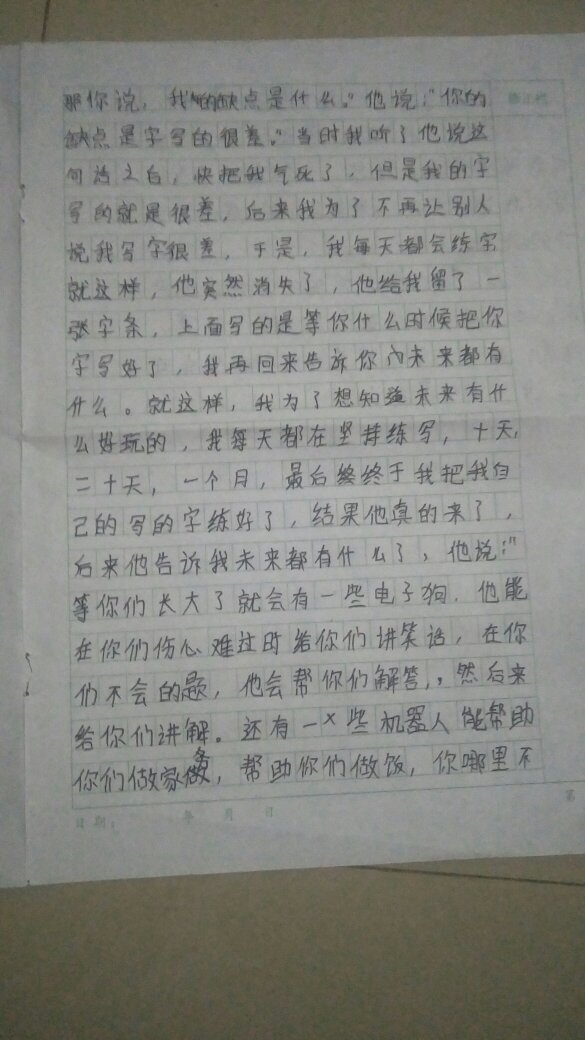 那你说，我的缺点是什么。"他说："你的
缺点是字写的很差。"当时我听了他说这
句话之后，快把我气死了，但是我的字
写的就是很差，后来我为了不再让别人
说我写字很差，于是，我每天都会练字
就这样，他突然消失了，他给我留了一
张字条，上面写的是等你什么时候把你
字写好了，我再回来告诉你们未来都有
什么。就这样，我为了想知道未来有什
么好玩的，我每天都在坚持练写，十天，
二十天，一个月，最后终终于我把我自
己的写的字练好了，结果他真的来了，
后来他告诉我未来都有什么了，他说："
等你们长大了就会有一些电子狗．他能
在你们伤心难过时给你们讲笑话，在你
们不会的题，他会帮你们解答，，然后来
给你们讲解。还有一些机器人能帮助
你们做家务，帮助你们做饭，你哪里不
日期： 年 月 日
第